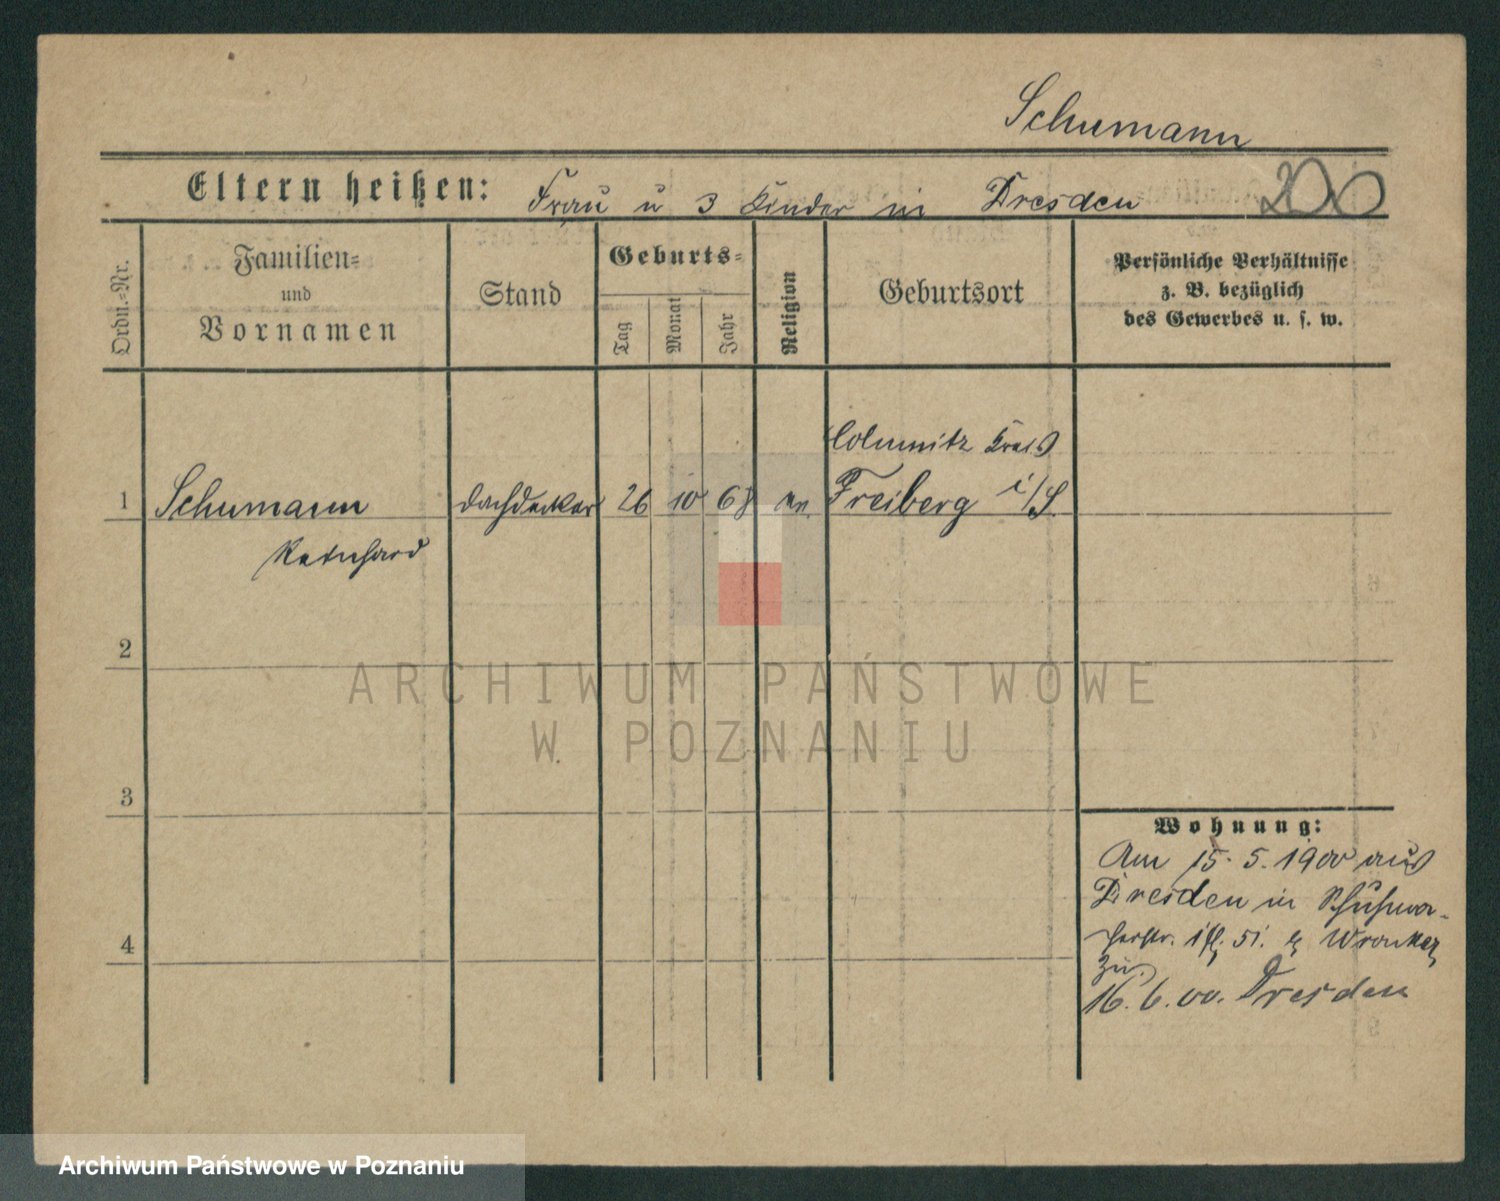 Schumann
Eltern heißen: Frau u 3 Kinder in Dresden 200
Ordn.-Nr.
Familien-
und
Vornamen
Stand
Geburts-
Tag
Monat
Jahr
Religion
Geburtsort
Persönliche Verhältnisse
z. B. bezüglich
des Gewerbes u. s. w.
Colmnitz Kreis
1 Schumann Dachdecker 26 10 68 ev. Freiberg i/S.
Reinhard
2
3
4
Wohnung:
Am 15. 5. 1900 aus
Dresden in Schuhma-
cherstr. 51. Wronker
zu.
16. 6. 00. Dresden
ARCHIWUM PAŃSTWOWE
W POZNANIU
Archiwum Państwowe w Poznaniu